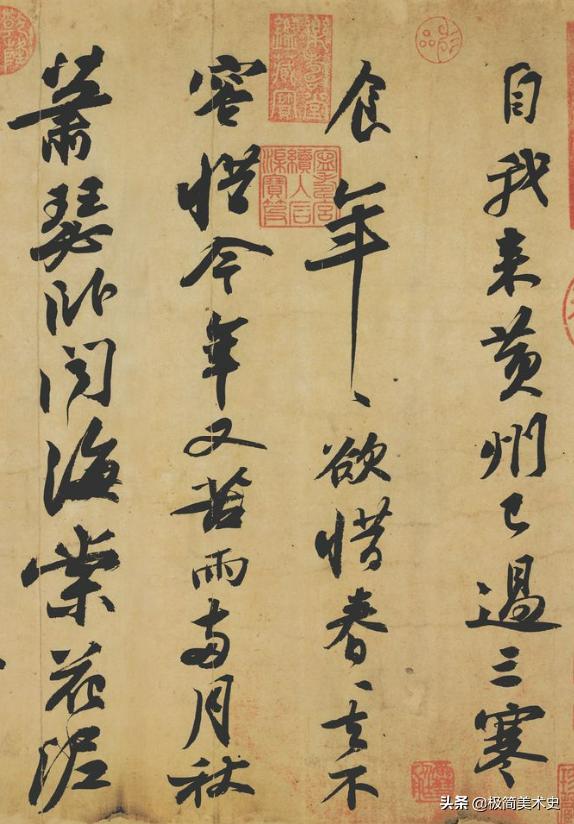 自我来黄州已過三寒
食年〻欲惜春〻去不
容惜今年又苦雨兩月秋
蕭瑟卧聞海棠花泥
头条 @极简美术史